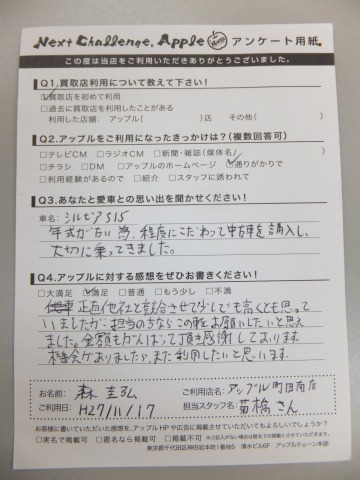 Next Challenge. Apple アンケート用紙
この度は当店をご利用いただきありがとうございました。
Q1,買取店利用について教えて下さい!
☑買取店を初めて利用
□過去に買取店を利用したことがある
利用した店舗: アップル( )店 その他( )
Q2.アップルをご利用になったきっかけは?(複数回答可)
□テレビCM □ラジオCM □新聞・雑誌(媒体名/ )
□チラシ □DM □アップルのホームページ ☑通りがかりで
□利用経験があるので □紹介 □スタッフに誘われて
Q3.あなたと愛車との思い出を聞かせください!
車名: シルビアS15
年式が古い為、程度にこだわって中古車を購入し、
大切に乗ってきました。
Q4.アップルに対する感想をぜひお書きください!
□大満足 ☑満足 □普通 □もう少し □不満
正直他社と競合させて少しでも高くとも思って
いましたが、担当の方ならこの車をお願いしたいと思え
ました。金額もがんばって頂き感謝しております。
機会がありましたら、また利用したいと思います。
お名前: 森 ご利用店名: アップル町田南店
ご利用日: H27/11/17 担当スタッフ名: 苗橋さん
お客様に書いていただいた感想を、アップルHPや広告に掲載させていただいてもよろしいでしょうか?
□実名で掲載可 □匿名なら掲載可 □掲載不可 ※ご記入がない場合は匿名での掲載とさせていただきます。
東京都千代田区神田岩本町1番地5 清水ビル6F アップルチェーン本部